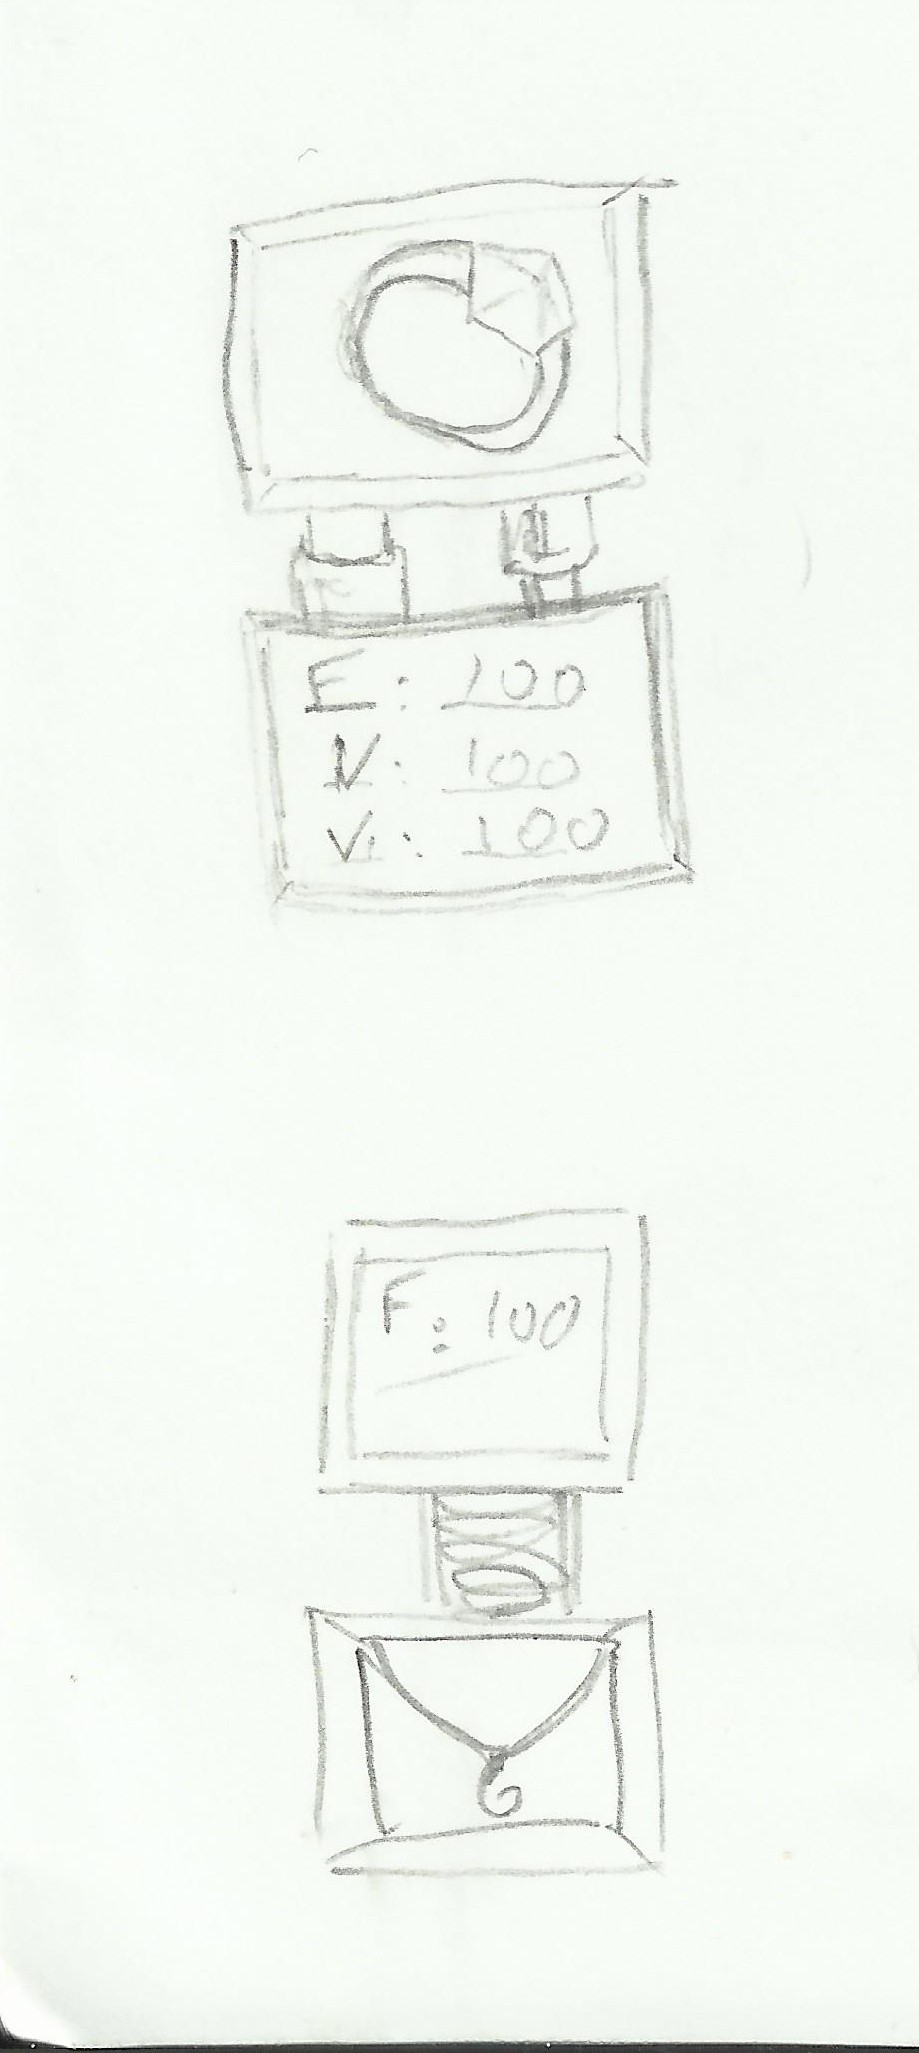 F: 100
N: 100
Vi: 100
F: 100